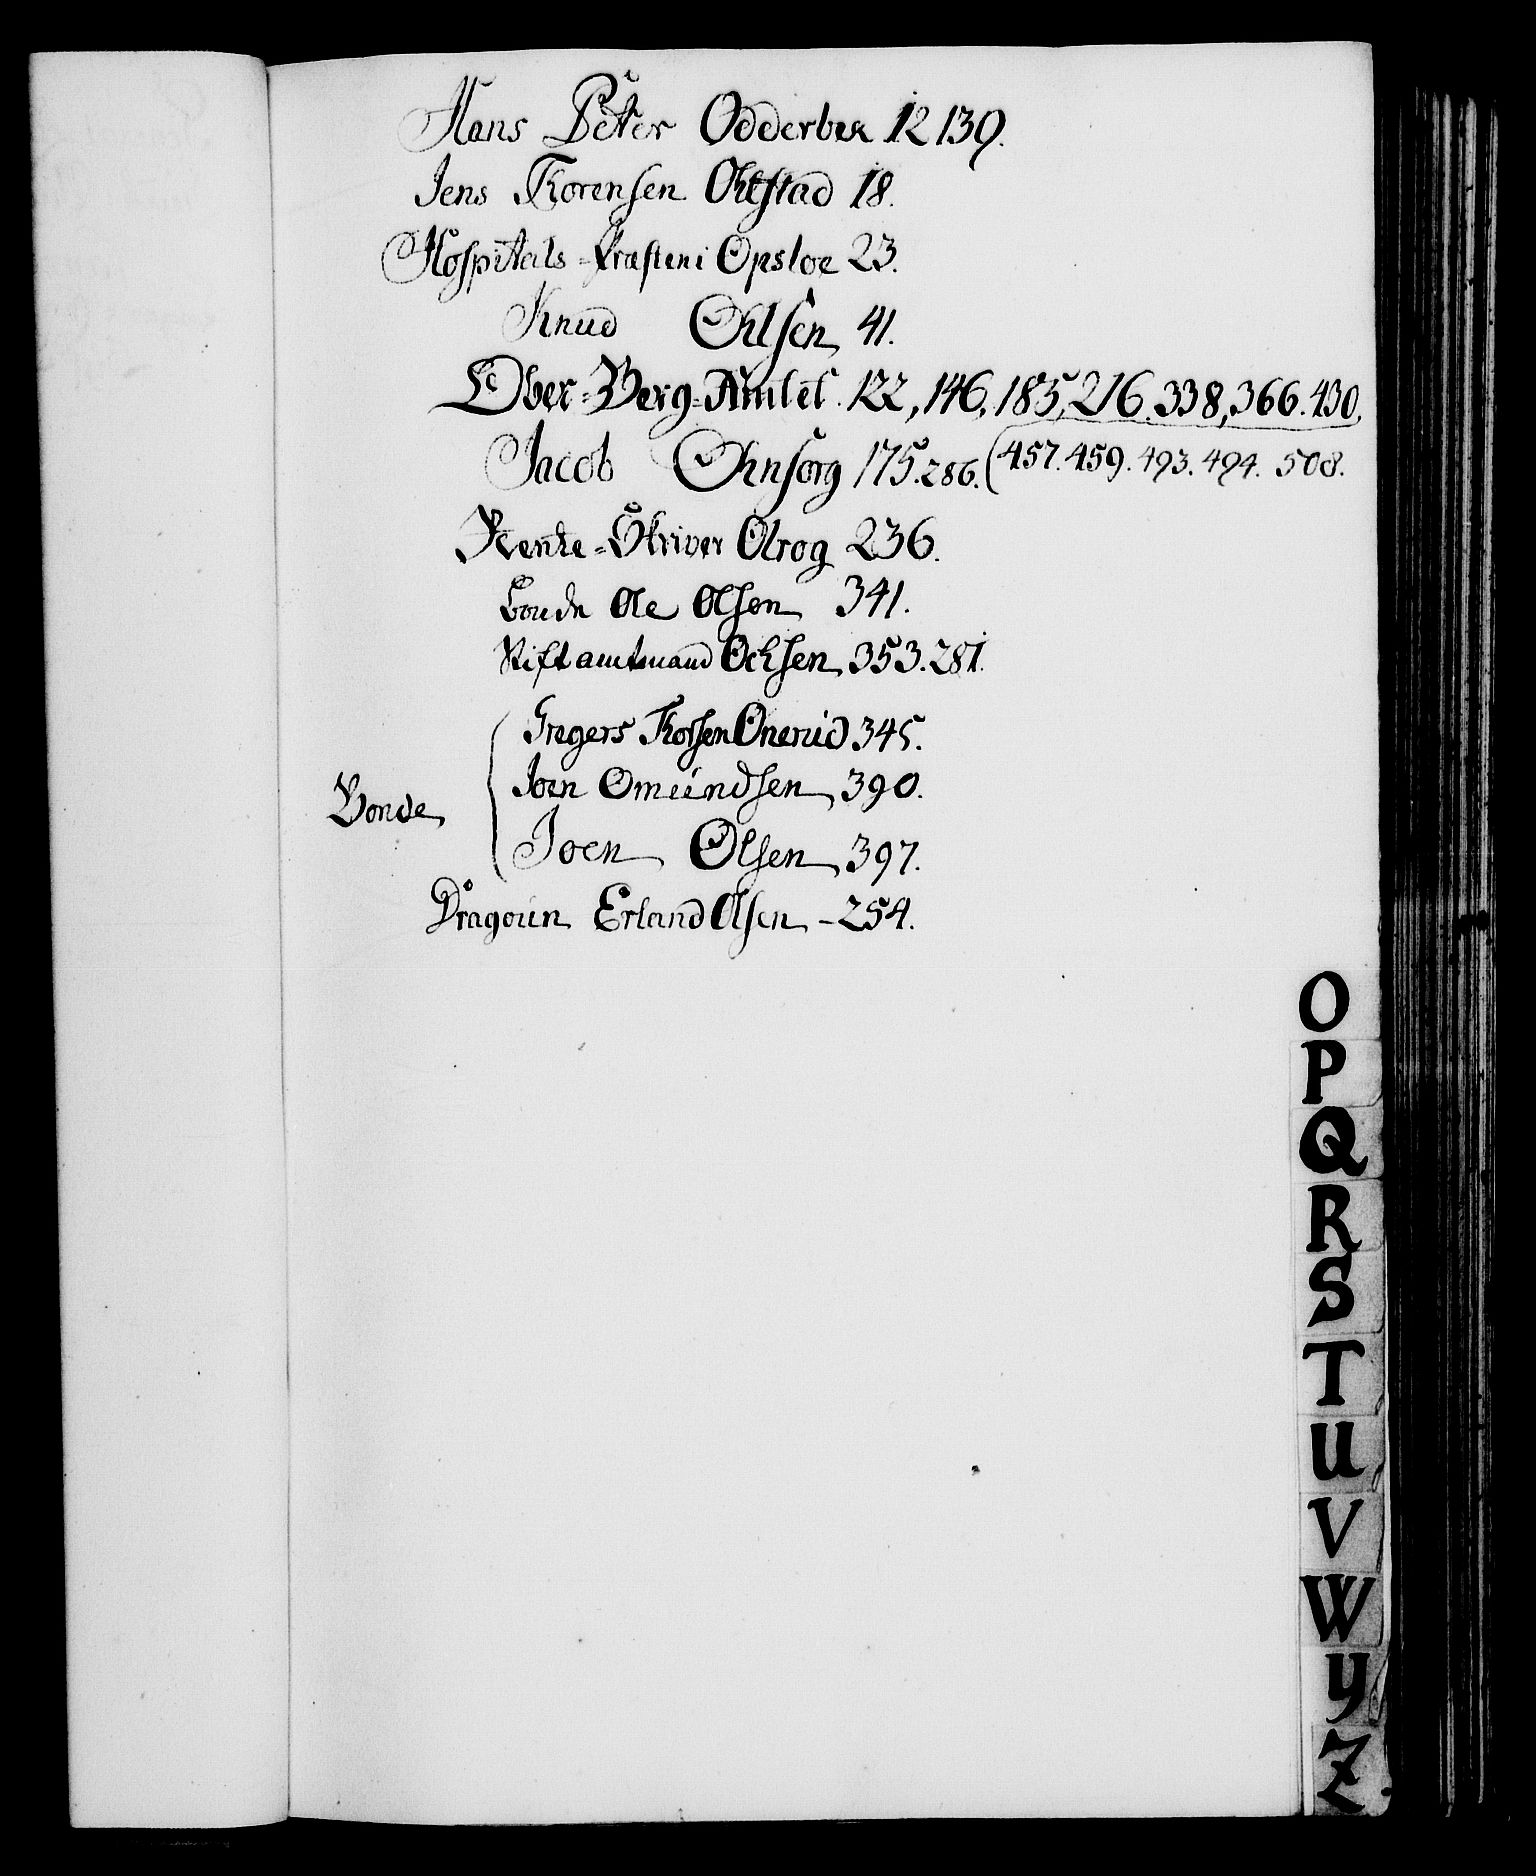 Hans Peter Odderbek 12 139.
Jens Thorensen Ohlstad 18.
Hospitals-Præsten i Opsloe 23.
Knud Ohlsen 41.
Ober-Berg-Amtet. 122, 146, 185, 216. 338, 366. 430.
Jacob Ohnsorg 175. 286. (457. 459. 493. 494. 508.
Rente-Skriver Olrog 236.
Bonde Ole Olsen 341.
Stiftamtmand Ochsen 353. 281.
Gregers Thorsen Onerud 345.
Joen Omundsen 390.
Bonde
Joen Olsen 397.
Dragoun Erland Olsen - 254.
O
P
Q
R
S
T
U
V
W
Y
Z